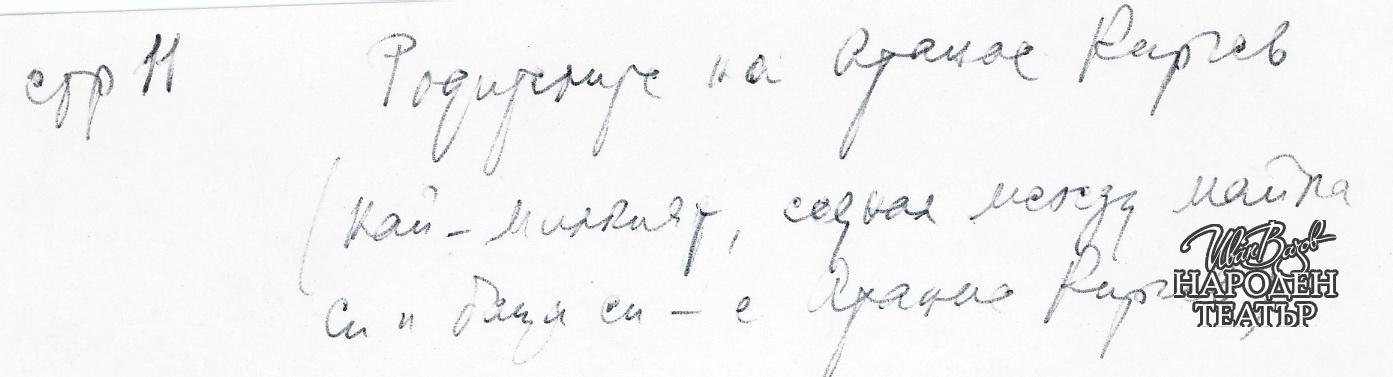 стр 11 Родителите на Атанас Кирчев
(най-малкият, седнал между майка
си и баща си - е Атанас Кирчев)
Иван Вазов
НАРОДЕН
ТЕАТЪР